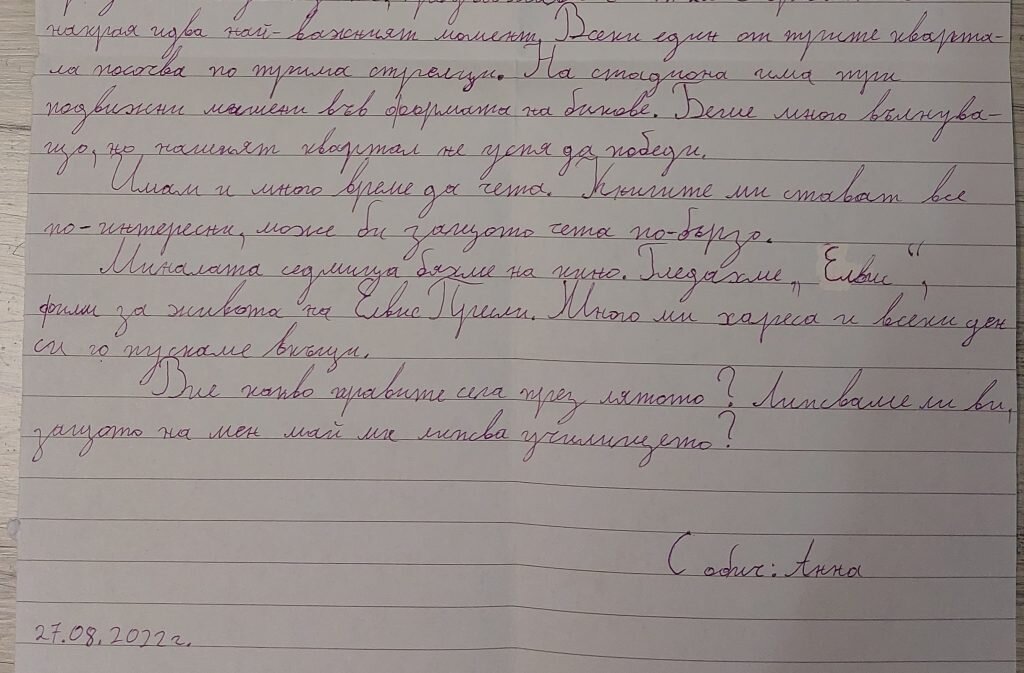 накрая идва най-важният момент. Всеки един от трите кварта-
ла посочва по трима стрелци. На стадиона има три
подвижни мишени във формата на бикове. Беше много вълнува-
що, но нашият квартал не успя да победи.
Имам и много време да чета. Книгите ми стават все
по-интересни, може би защото чета по-бързо.
Миналата седмица бяхме на кино. Гледахме „Елвис“,
филм за живота на Елвис Пресли. Много ми хареса и всеки ден
си го пускаме вкъщи.
Вие какво правите сега през лятото? Липсваме ли ви,
защото на мен май ми липсва училището?
С обич: Анна
27.08.2022г.